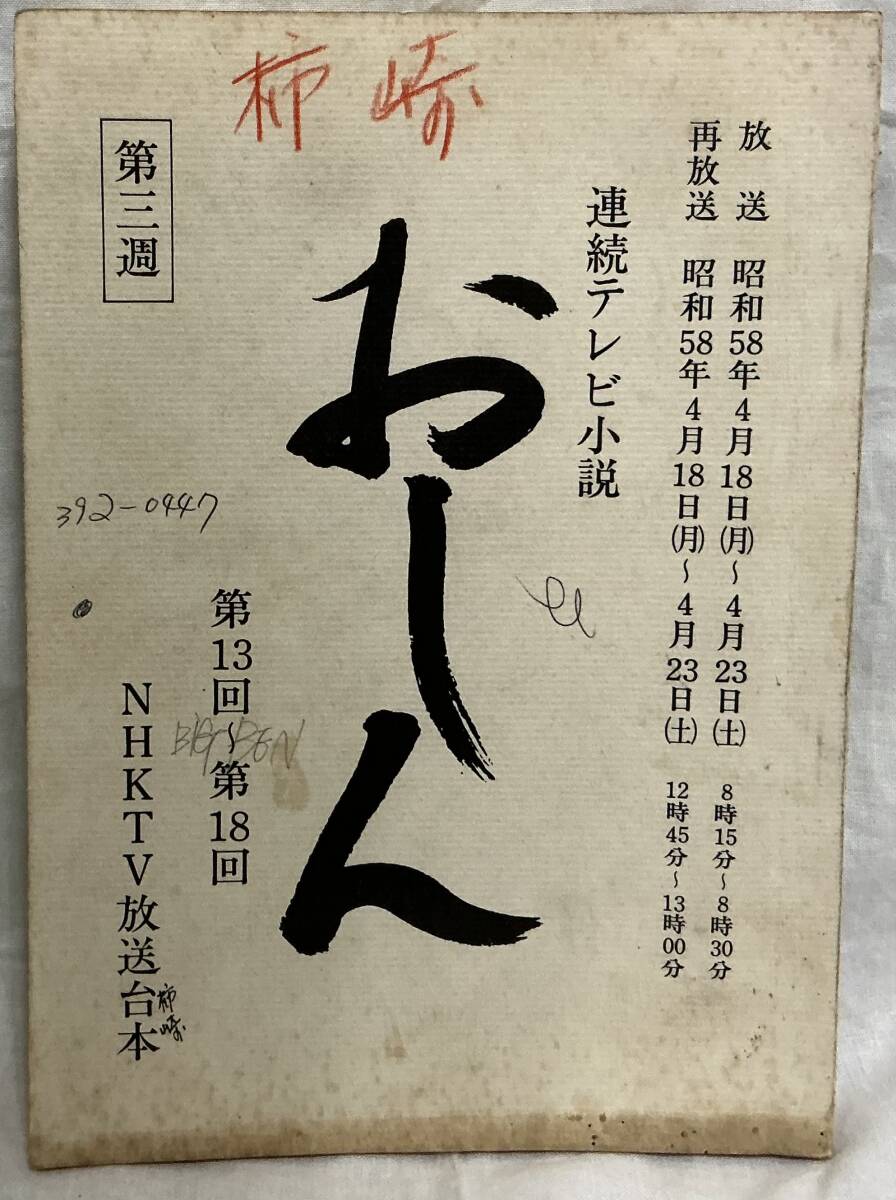 柿崎
放送 昭和58年4月18日(月)～4月23日(土) 8時15分～8時30分
再放送 昭和58年4月18日(月)～4月23日(土) 12時45分～13時00分
連続テレビ小説
おしん
第三週
第13回～第18回
BIG BEN
392-0447
NHKTV放送台本
柿崎